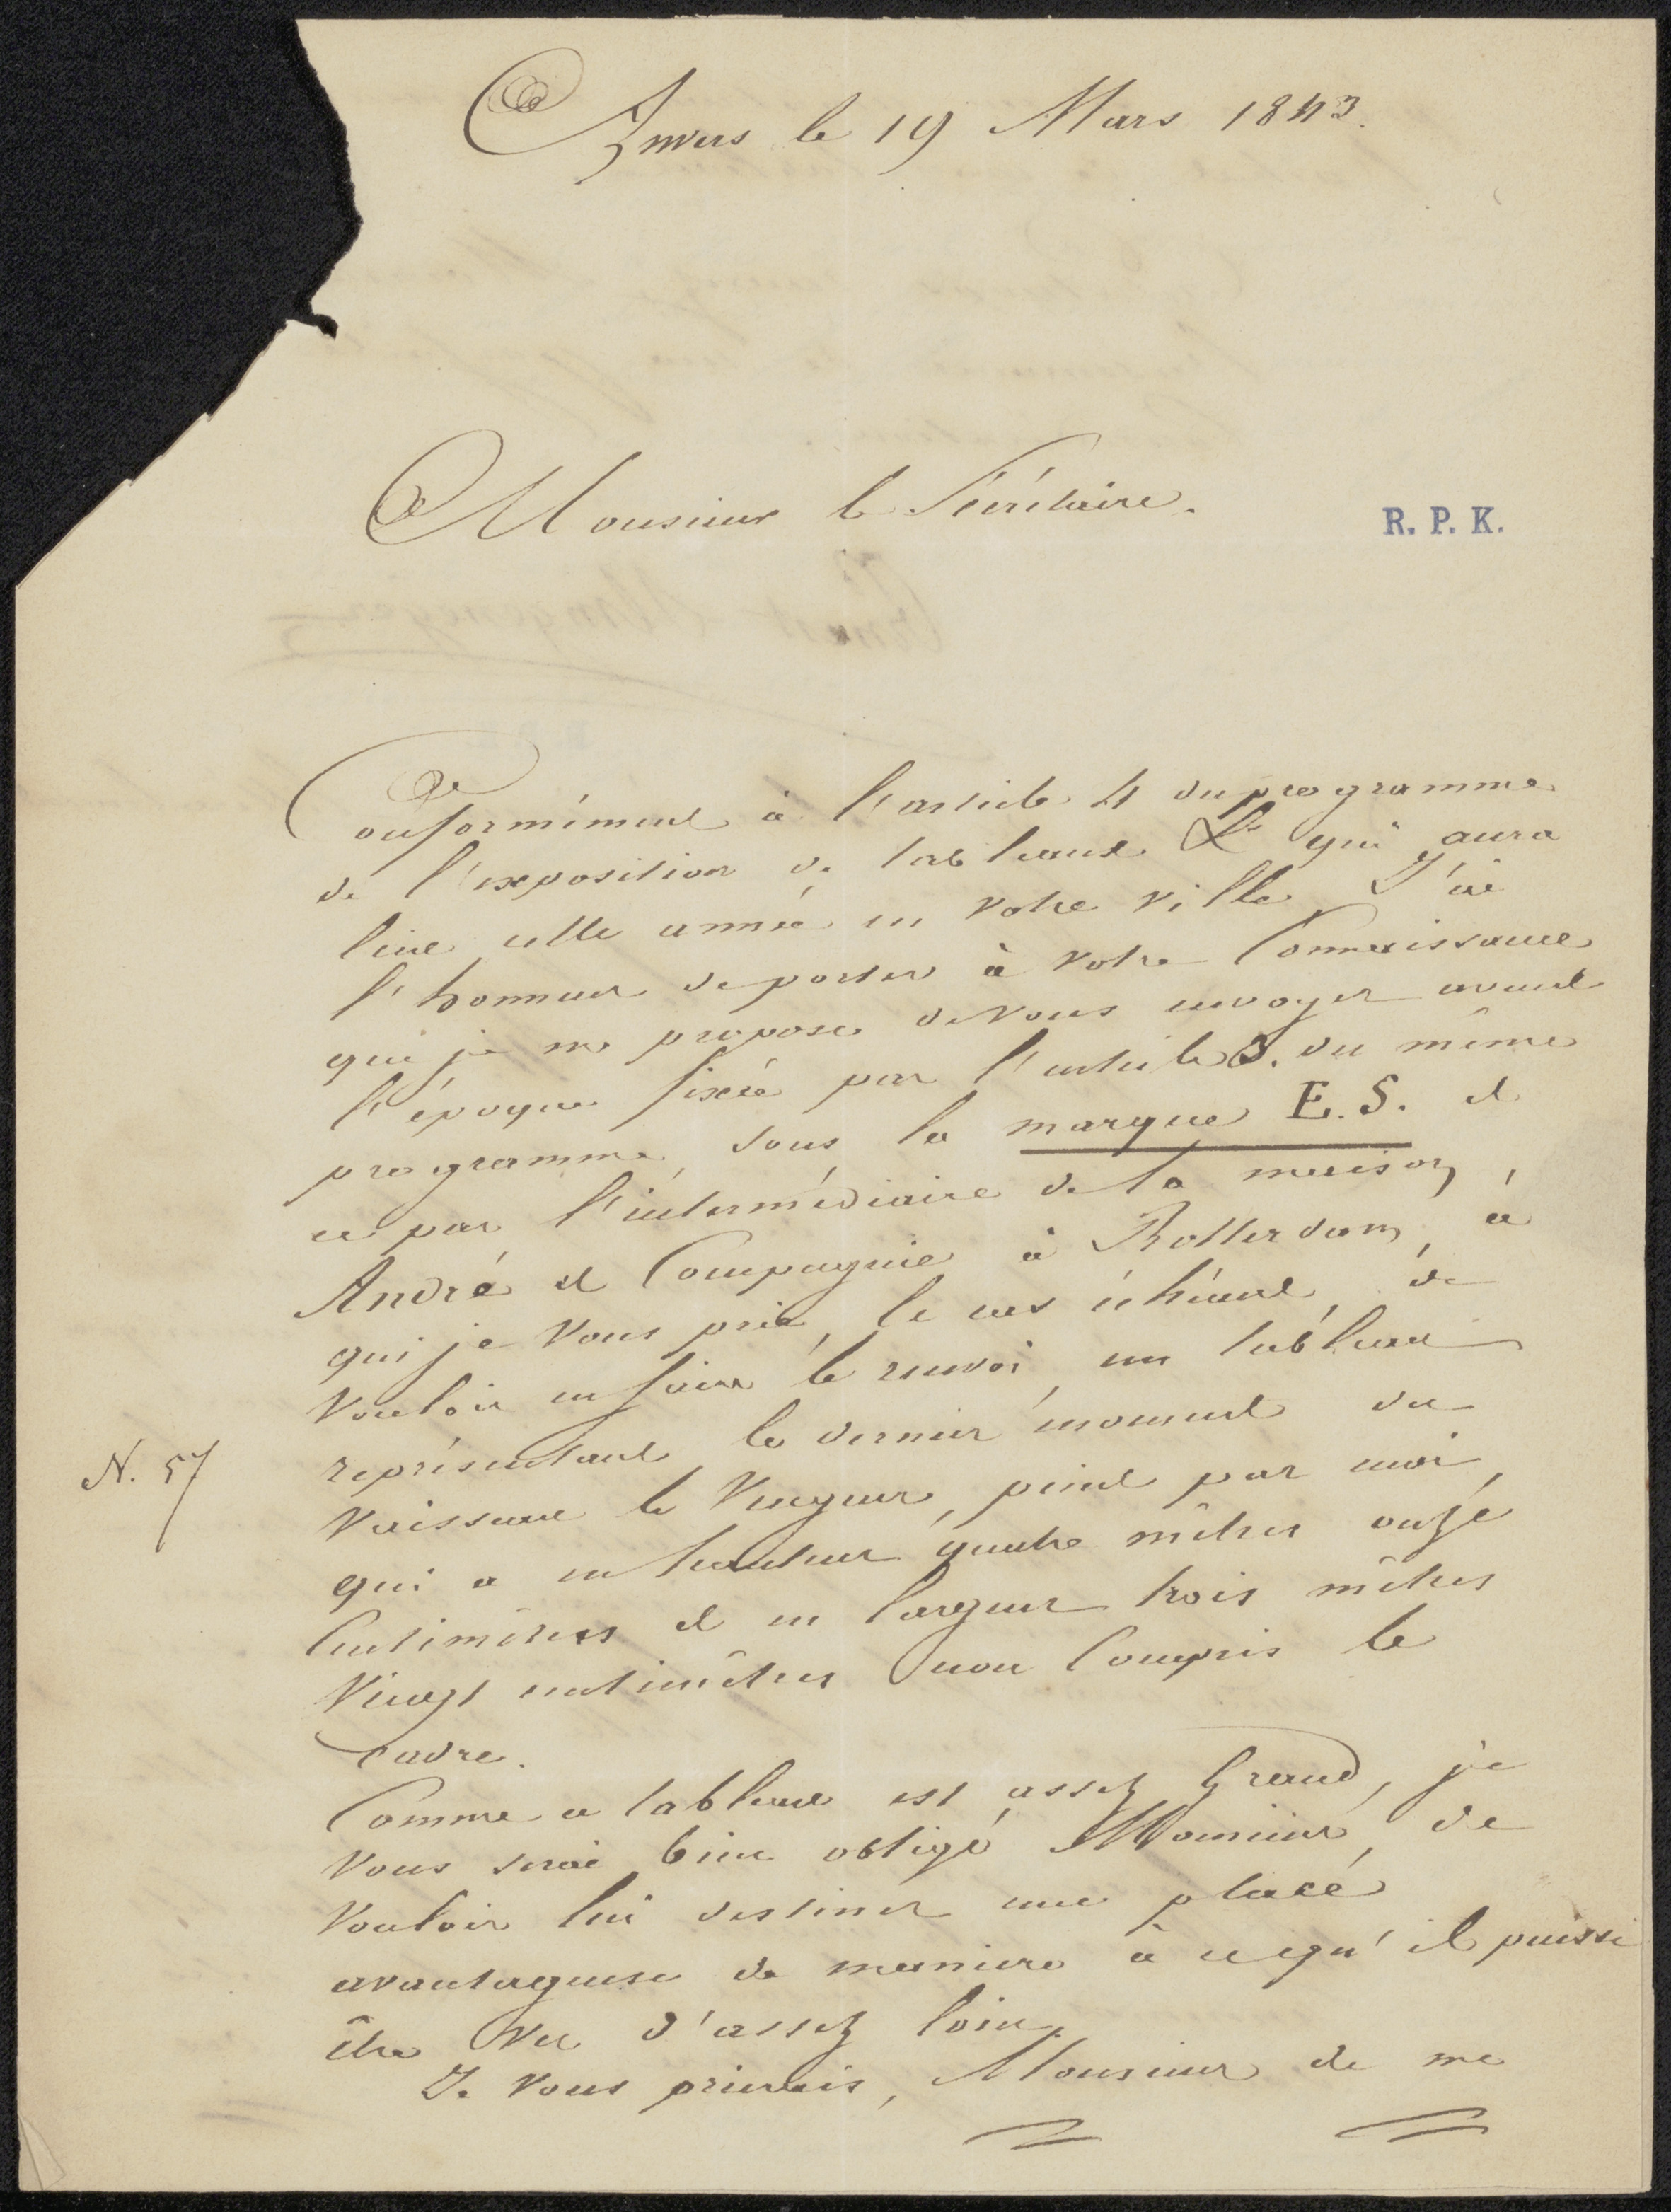 Anvers le 19 Mars 1843.
Monsieur le Sécrétaire.
R. P. K.
Conformément à l'article 4 du programme
de l'exposition de tableaux &c qui aura
lieu cette année en votre ville J'ai
l'honneur de porter à votre Connaissance
que je me propose de vous envoyer avant
l'époque fixée par l'article 3. du même
programme, sous la marque E. S. et
ce par l'intermédiaire de la maison,
André et Compagnie à Rotterdam, à
qui je vous prie, le cas échéant, de
vouloir en faire le renvoi, un tableau
représentant le dernier moment du
N. 57
Vaisseau le Vengeur, peint par moi,
qui a en hauteur quatre mètres onze
Centimètres et en largeur trois mètres
Vingt centimètres non Compris le
Cadre.
Comme ce tableau est assez Grand, je
vous serai bien obligé Monsieur, de
Vouloir lui destiner une place
avantageuse de maniere à ce qu'il puisse
être Vu d'assez loin.
Je Vous prierais, Monsieur de me